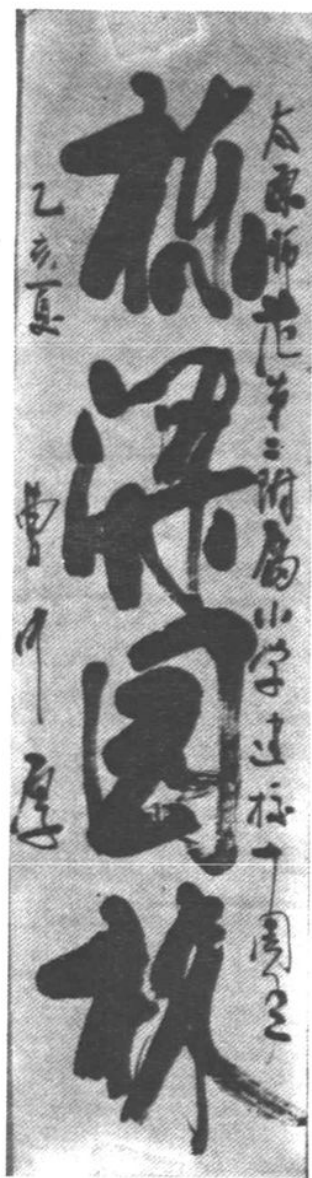 太原师范第二附属小学建校十周年
栋梁园林
乙亥夏 曹中厚